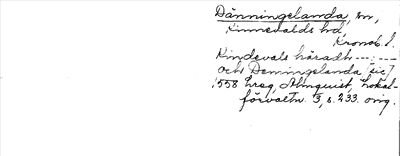 Dänningelanda, sn,
Kinnevalds hd,
Kronob. l.
Kindevals häradh --- --- 
och Demingelanda [sic]
1558 hreg, Almquist, Lokal-
förvaltn. 3, s. 233. orig.